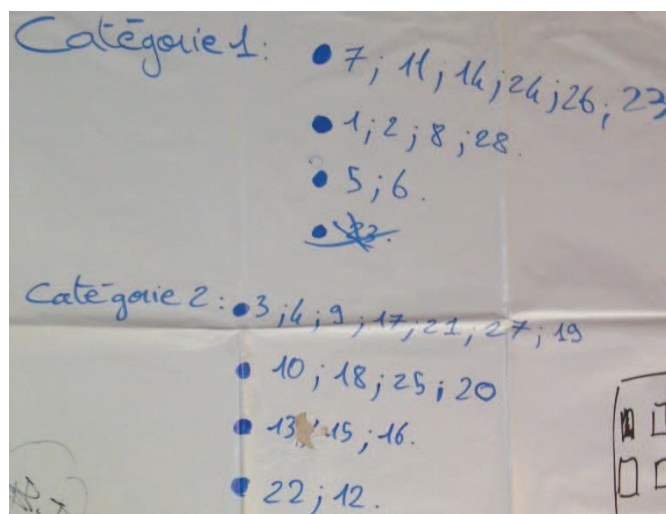 Catégorie 1: • 7; 11; 14; 24; 26; 23
• 1; 2; 8; 28.
• 5; 6.
Catégorie 2: • 3; 4; 9; 17; 21; 27; 19
• 10; 18; 25; 20
• 13; 15; 16.
• 22; 12.